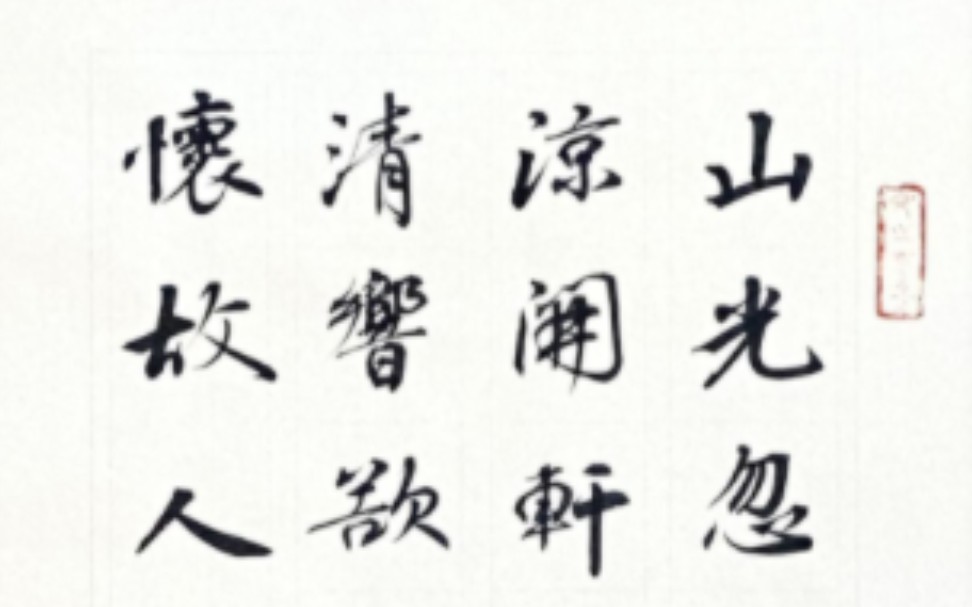 山光忽
涼開軒
清響欲
懷故人